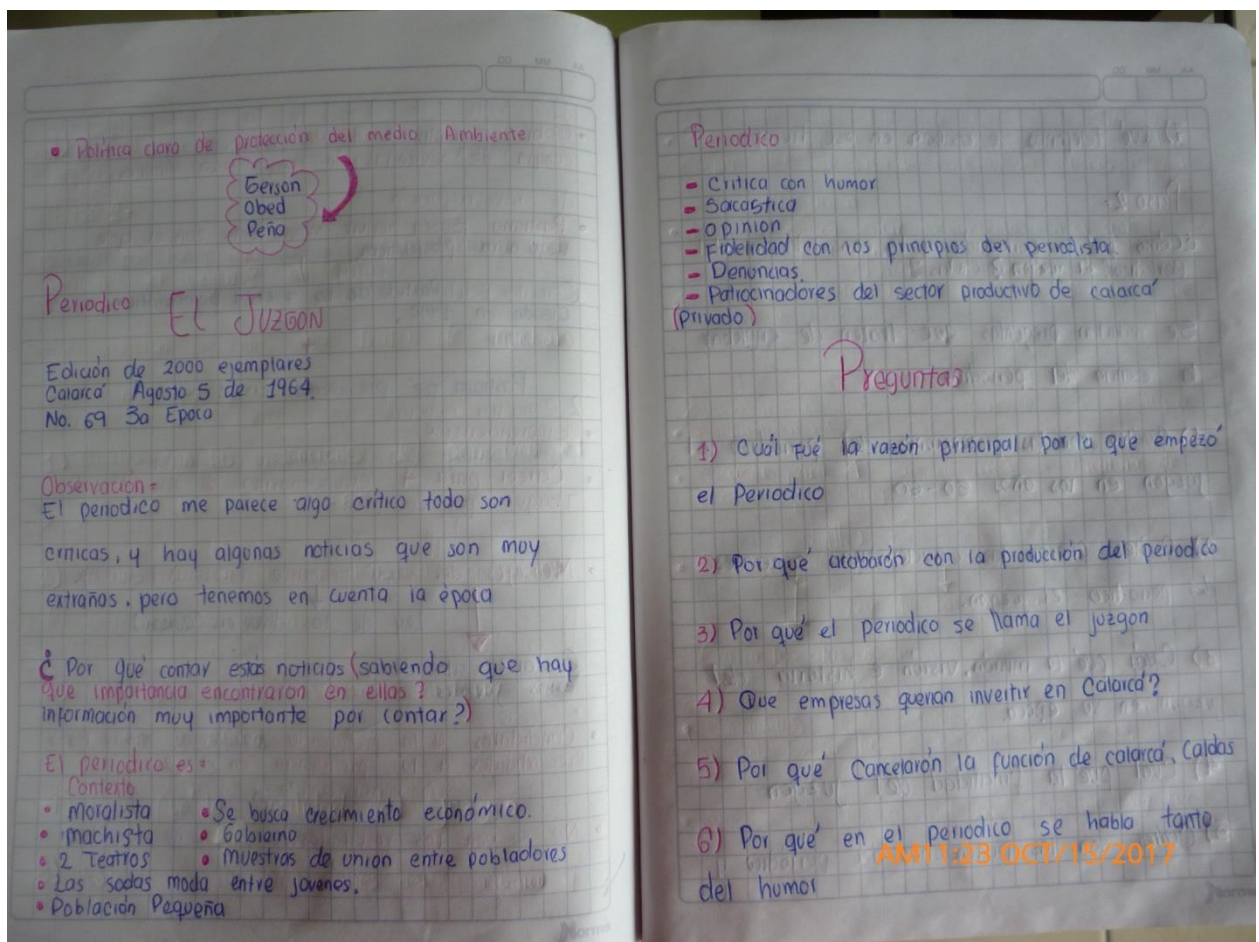 DD MM AA
• Política claro de protección del medio Ambiente
Gerson
Obed
Peña
Periodico El JUZGON
Edición de 2000 ejemplares
Calarcá Agosto 5 de 1964.
No. 69 3a Epoca
Observacion =
El periodico me parece algo crítico todo son
criticas, y hay algunas noticias que son muy
extrañas. pero tenemos en cuenta la época
¿ Por qué contar estas noticias (sabiendo que hay
que importancia encontraron en ellas ?
información muy importante por contar?)
El periodico es =
Contexto
• moralista • Se busca crecimiento económico.
• machista • Gobierno
• 2 Teatros • muestras de union entre pobladores
• Las sodas moda entre jovenes.
• Población Pequeña
Norma
DD MM AA
Periodico
- Critica con humor
- Sarcastica
- Opinion
- Fidelidad con los principios del periodista.
- Denuncias.
- Patrocinadores del sector productivo de calarcá
(privado)
Preguntas
1) Cuál fué la razón principal por la que empezó
el Periodico
2) Por qué acabarón con la producción del periodico
3) Por qué el periodico se llama el juzgon
4) Que empresas querian invertir en Calarcá?
5) Por qué Cancelarón la función de calarcá, Caldas
6) Por qué en el periodico se habla tanto
del humor
AM11:23 OCT/15/2017
Norma